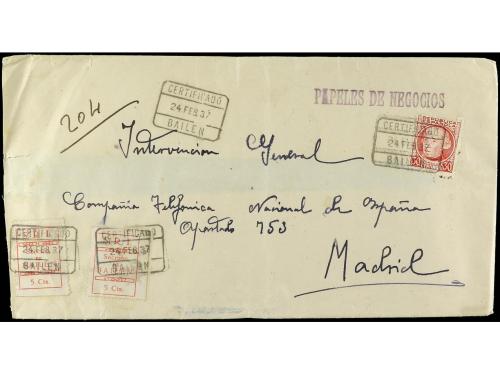 204
CERTIFICADO
24 FEB 37
BAILEN
PAPELES DE NEGOCIOS
CERTIFICADO
24 FEB 37
BAILEN
30
Intervencion General
Compañia Telefonica Nacional de España
Apartado 753
Madrid
CERTIFICADO
24 FEB 37
BAILEN
5 Cts.
CERTIFICADO
S.R.I.
24 FEB 37
BAILEN
5 Cts.